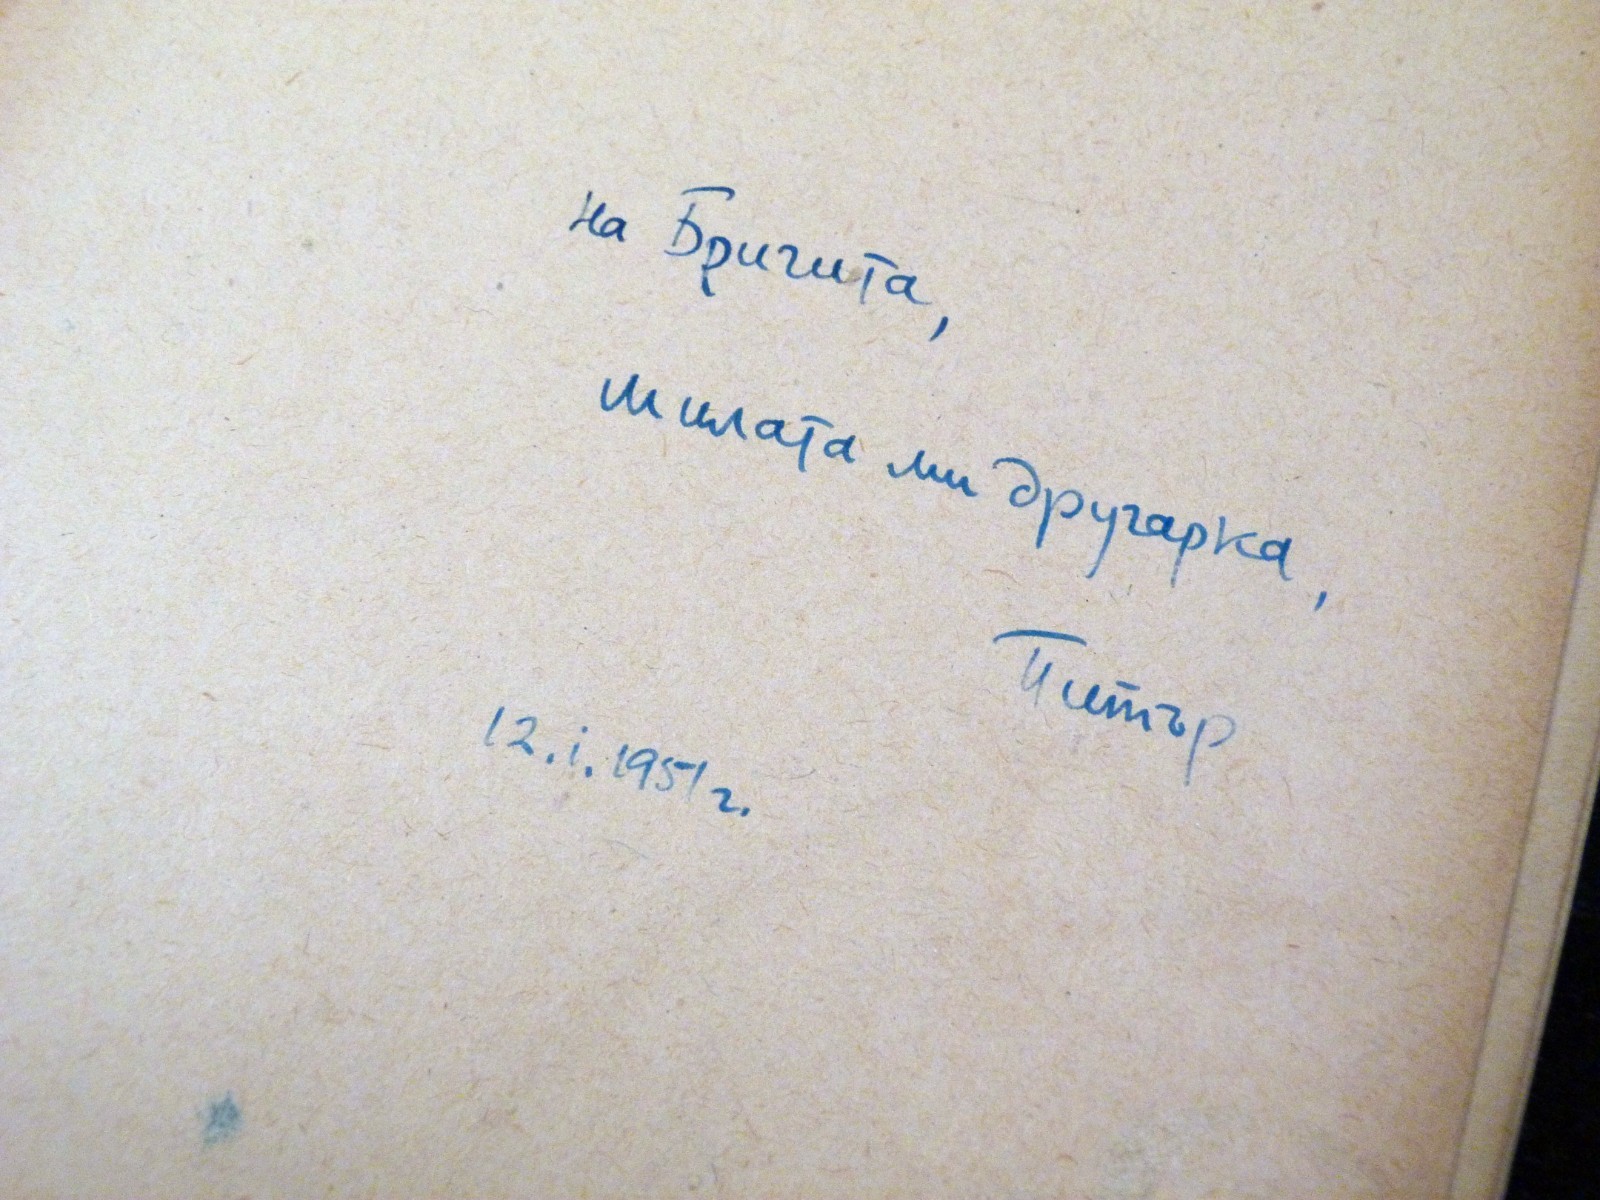 на Бригита,
милата ми другарка,
Питър
12.i.1951г.